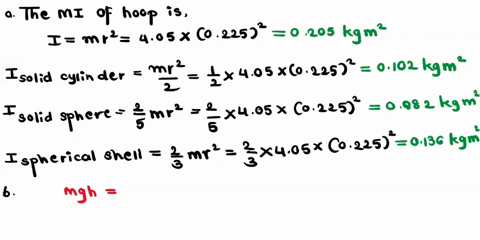 a. The MI of hoop is,
I = mr² = 4.05 × (0.225)² = 0.205 kgm²
I solid cylinder = mr²/2 = 1/2 × 4.05 × (0.225)² = 0.102 kgm²
I solid sphere = 2/5 mr² = 2/5 × 4.05 × (0.225)² = 0.082 kgm²
I spherical shell = 2/3 mr² = 2/3 × 4.05 × (0.225)² = 0.136 kgm²
b. mgh =